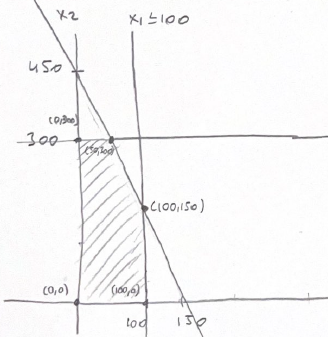 x2
x1 ≤100
450
(0,300)
300
(50,300)
(100,150)
(0,0)
(100,0)
100
150